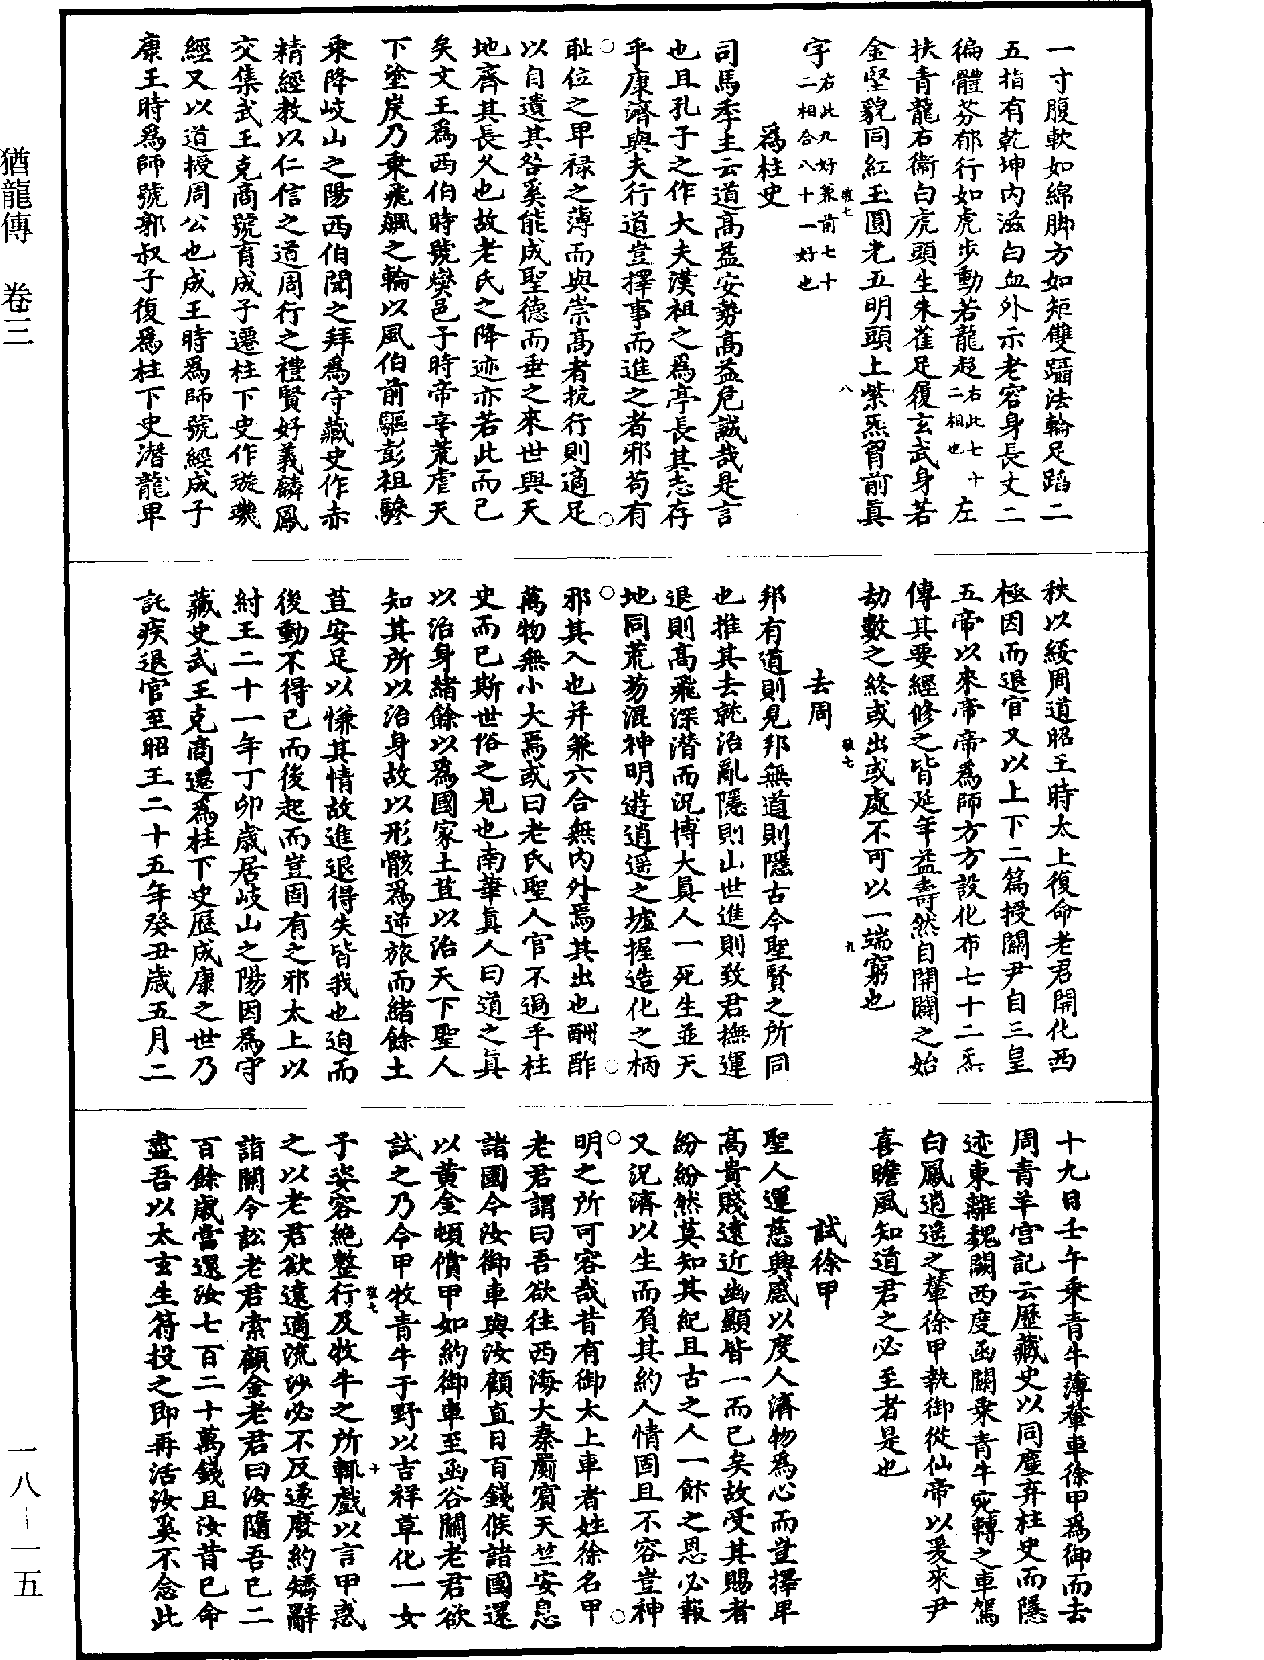 一寸腹軟如綿脚方如矩雙躡法輪足蹈二
五指有乾坤內滋白血外示老容身長丈二
徧體芬郁行如虎步動若龍趍右此七十二相也左
扶青龍右衛白虎頭生朱雀足履玄武身若
金堅貌同紅玉圓光五明頭上紫炁胷前眞
字右此九好兼前七十二相合八十一好也
爲柱史
司馬季主云道高益安勢高益危誠哉是言
也且孔子之作大夫漢祖之爲亭長其志存
乎康濟與夫行道豈擇事而進之者邪苟有
耻位之卑祿之薄而與崇高者抗行則適足
以自遺其咎奚能成聖德而垂之來世與天
地齊其長久也故老氏之降迹亦若此而已
矣文王爲西伯時號燮邑子時帝辛荒虐天
下塗炭乃乘飛飈之輪以風伯前驅彭祖驂
乘降岐山之陽西伯聞之拜爲守藏史作赤
精經教以仁信之道周行之禮賢好義麟鳳
交集武王克商號育成子遷柱下史作璇璣
經又以道授周公也成王時爲師號經成子
康王時爲師號郭叔子復爲柱下史潛龍卑
秩以綏周道昭王時太上復命老君開化西
極因而退官又以上下二篇授關尹自三皇
五帝以來帝帝爲師方方設化布七十二炁
傳其要經修之皆延年益壽然自開闢之始
劫數之終或出或處不可以一端窮也
去周
邦有道則見邦無道則隱古今聖賢之所同
也推其去就治亂隱則山世進則致君撫運
退則高飛深潛而況博大眞人一死生並天
地同荒芴混神明遊逍遥之墟握造化之柄
邪其入也并兼六合無內外焉其出也酬酢
萬物無小大焉或曰老氏聖人官不過乎柱
史而已斯世俗之見也南華眞人曰道之眞
以治身緒餘以爲國家土苴以治天下聖人
知其所以治身故以形骸爲逆旅而緒餘土
苴安足以慊其情故進退得失皆我也迫而
後動不得已而後起而豈固有之邪太上以
紂王二十一年丁卯歲居岐山之陽因爲守
藏史武王克商遷爲柱下史歷成康之世乃
託疾退官至昭王二十五年癸丑歲五月二
十九日壬午乘青牛薄軬車徐甲爲御而去
周青羊宮記云歷藏史以同塵弃柱史而隱
迹東離魏闕西度函關乘青牛宛轉之車駕
白鳳逍遥之輦徐甲執御從仙帝以爰來尹
喜瞻風知道君之必至者是也
試徐甲
聖人運慈興感以度人濟物爲心而豈擇卑
高貴賤遠近幽顯皆一而已矣故受其賜者
紛紛然莫知其紀且古之人一飯之恩必報
又況濟以生而負其約人情固且不容豈神
明之所可容哉昔有御太上車者姓徐名甲
老君謂曰吾欲往西海大秦罽賓天竺安息
諸國今汝御車與汝顧直日百錢候諸國還
以黃金頓償甲如約御車至函谷關老君欲
試之乃令甲牧青牛于野以吉祥草化一女
子姿容絶整行及牧牛之所輒戲以言甲惑
之以老君欲遠適流沙必不反遂廢約矯辭
詣關令訟老君索顧金老君曰汝隨吾已二
百餘歲當還汝七百二十萬錢且汝昔已命
盡吾以太玄生符投之即再活汝奚不念此
猶龍傳 卷三
一八-一五